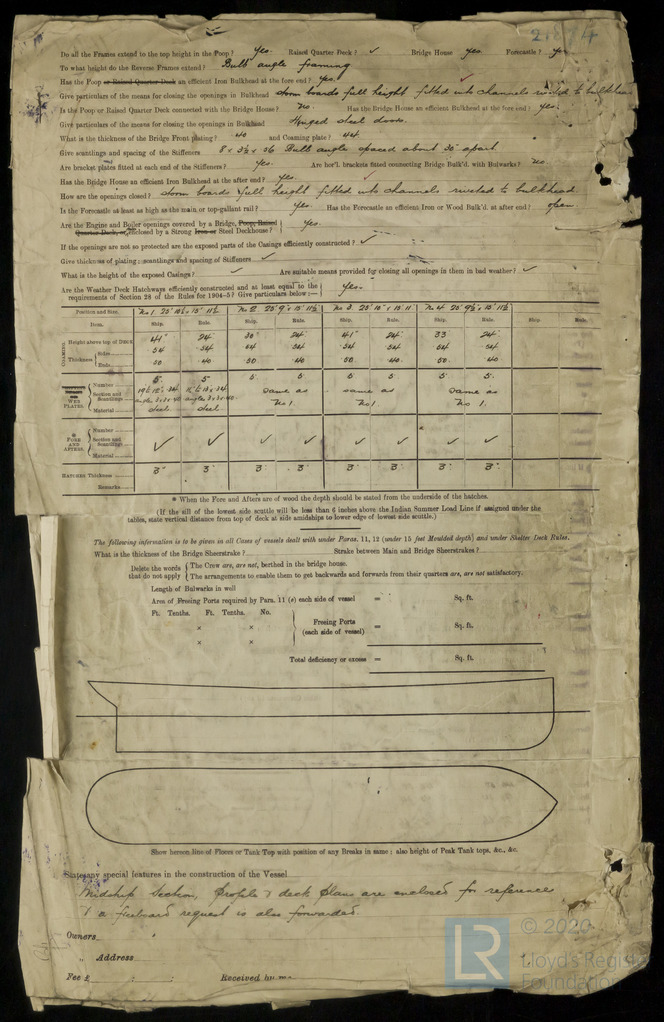 Do all the Frames extend to the top height in the Poop? Yes. Raised Quarter Deck? ✓ Bridge House yes Forecastle? yes
To what height do the Reverse Frames extend? Bulb angle framing
Has the Poop or Raised Quarter Deck an efficient Iron Bulkhead at the fore end? Yes.
Give particulars of the means for closing the openings in Bulkhead storm boards full height fitted into channels riveted to bulkhead
Is the Poop or Raised Quarter Deck connected with the Bridge House? no. Has the Bridge House an efficient Bulkhead at the fore end? yes.
Give particulars of the means for closing the openings in Bulkhead Hinged steel doors.
What is the thickness of the Bridge Front plating? 40 and Coaming plate? 44
Give scantlings and spacing of the Stiffeners 8 x 3½ x 36 Bulb angle spaced about 30" apart
Are bracket plates fitted at each end of the Stiffeners? Yes. Are hor'l. brackets fitted connecting Bridge Bulk'd. with Bulwarks? no.
Has the Bridge House an efficient Iron Bulkhead at the after end? yes.
How are the openings closed? storm boards full height fitted into channels riveted to bulkhead.
Is the Forecastle at least as high as the main or top-gallant rail? yes. Has the Forecastle an efficient Iron or Wood Bulk'd. at after end? open
Are the Engine and Boiler openings covered by a Bridge, Poop, Raised
Quarter Deck, or enclosed by a Strong Iron or Steel Deckhouse? Yes.
If the openings are not so protected are the exposed parts of the Casings efficiently constructed? ✓
Give thickness of plating; scantlings and spacing of Stiffeners ✓
What is the height of the exposed Casings? ✓ Are suitable means provided for closing all openings in them in bad weather? ✓
Are the Weather Deck Hatchways efficiently constructed and at least equal to the
requirements of Section 28 of the Rules for 1904–5? Give particulars below:— Yes.
Position and Size. No 1. No 2 No 3 No 4
Item. Ship. Rule. Ship. Rule. Ship. Rule. Ship. Rule. Ship. Rule.
COAMING Height above top of Deck 41" 24" 30" 24" 41" 24" 33 24"
Thickness Sides 54 54 54 54 54 54 54 54
Ends 50 40 50 40 50 40. 50 40.
WEB PLATES. Number 5 5 5 5 5 5 5. 5.
Section and Scantlings same as No 1 same as No 1 same as No 1.
Material steel steel
* FORE AND AFTERS. Number
Section and Scantlings ✓ ✓ ✓ ✓ ✓ ✓ ✓ ✓
Material
HATCHES Thickness 3" 3" 3" 3" 3" 3" 3" 3"
Remarks
* When the Fore and Afters are of wood the depth should be stated from the underside of the hatches.
(If the sill of the lowest side scuttle will be less than 6 inches above the Indian Summer Load Line if assigned under the
tables, state vertical distance from top of deck at side amidships to lower edge of lowest side scuttle.)
The following information is to be given in all Cases of vessels dealt with under Paras. 11, 12 (under 15 feet Moulded depth) and under Shelter Deck Rules.
What is the thickness of the Bridge Sheerstrake? Strake between Main and Bridge Sheerstrakes?
Delete the words that do not apply { The Crew are, are not, berthed in the bridge house.
The arrangements to enable them to get backwards and forwards from their quarters are, are not satisfactory.
Length of Bulwarks in well
Area of Freeing Ports required by Para. 11 (e) each side of vessel = Sq. ft.
Ft. Tenths. Ft. Tenths. No.
× ×
× ×
Freeing Ports (each side of vessel) = Sq. ft.
Total deficiency or excess = Sq. ft.
Show hereon line of Floors or Tank Top with position of any Breaks in same; also height of Peak Tank tops, &c., &c.
State any special features in the construction of the Vessel
Midship Section, Profile & deck plans are enclosed for reference
& a freeboard request is also forwarded.
Owners
" Address
Fee £ : : Received by me
LR © 2020
Lloyd's Register
Foundation